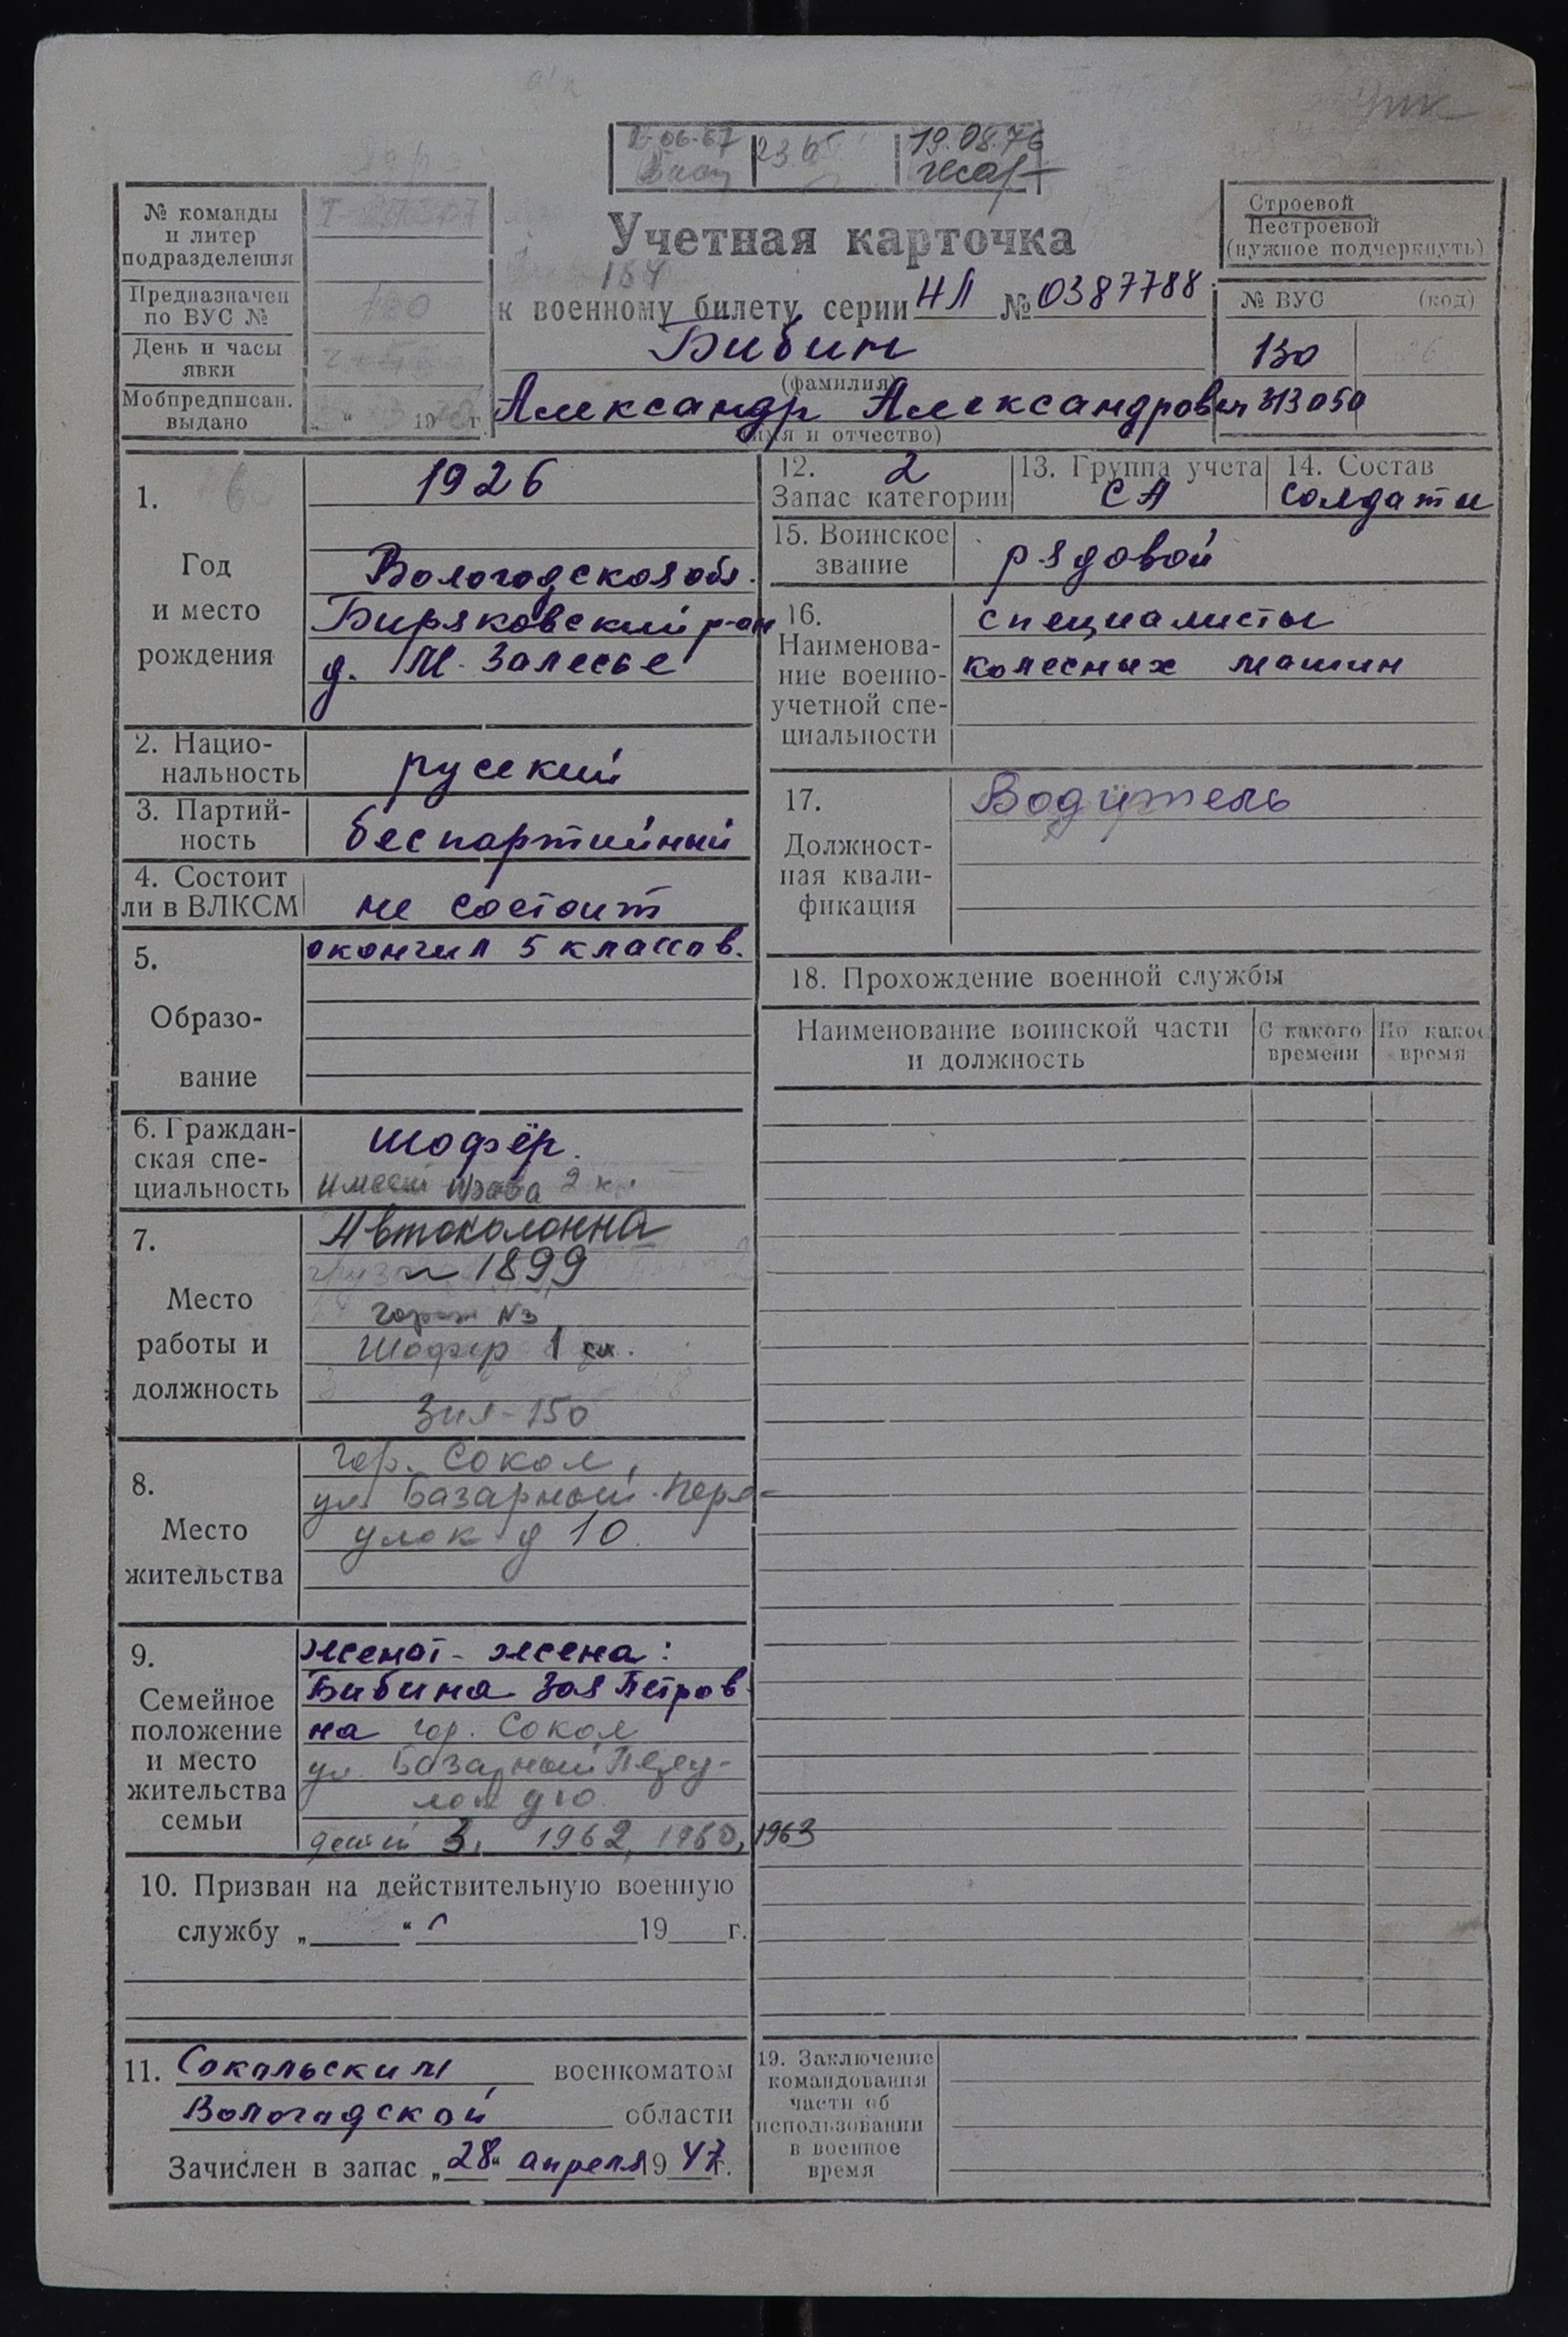 19.08.76
№ команды
и литер
подразделения
Предназначен
по ВУС №
День и часы
явки
Мобпредписан.
выдано
„ “ 19 г.
Учетная карточка
к военному билету серии НЛ № 0387788
Бибин
(фамилия)
Александр Александрович
(имя и отчество)
Строевой
Нестроевой
(нужное подчеркнуть)
№ ВУС (код)
130
313050
1.
Год
и место
рождения
1926
Вологодская обл.
Биряковский р-он
д. М. Залесье
2. Нацио-
нальность
русский
3. Партий-
ность
беспартийный
4. Состоит
ли в ВЛКСМ
не состоит
5.
Образо-
вание
окончил 5 классов.
6. Граждан-
ская спе-
циальность
шофёр.
имеет права 2 к.
7.
Место
работы и
должность
Автоколонна
1899
гараж N3
Шофер 1 кл.
Зил-150
8.
Место
жительства
гор. Сокол,
ул. Базарный пере-
улок д 10.
9.
Семейное
положение
и место
жительства
семьи
женат - жена:
Бибина Зоя Петров-
на гор. Сокол
ул. Базарный Переу-
лок д 10.
детей 3, 1962, 1960, 1963
10. Призван на действительную военную
службу „ “ 19 г.
11. Сокольским военкоматом
Вологодской области
Зачислен в запас „28“ апреля 1947 г.
12. 2
Запас категории
13. Группа учета
СА
14. Состав
солдаты
15. Воинское
звание
рядовой
16.
Наименова-
ние военно-
учетной спе-
циальности
специалисты
колесных машин
17.
Должност-
ная квали-
фикация
Водитель
18. Прохождение военной службы
Наименование воинской части
и должность
С какого
времени
По какое
время
19. Заключение
командования
части об
использовании
в военное
время